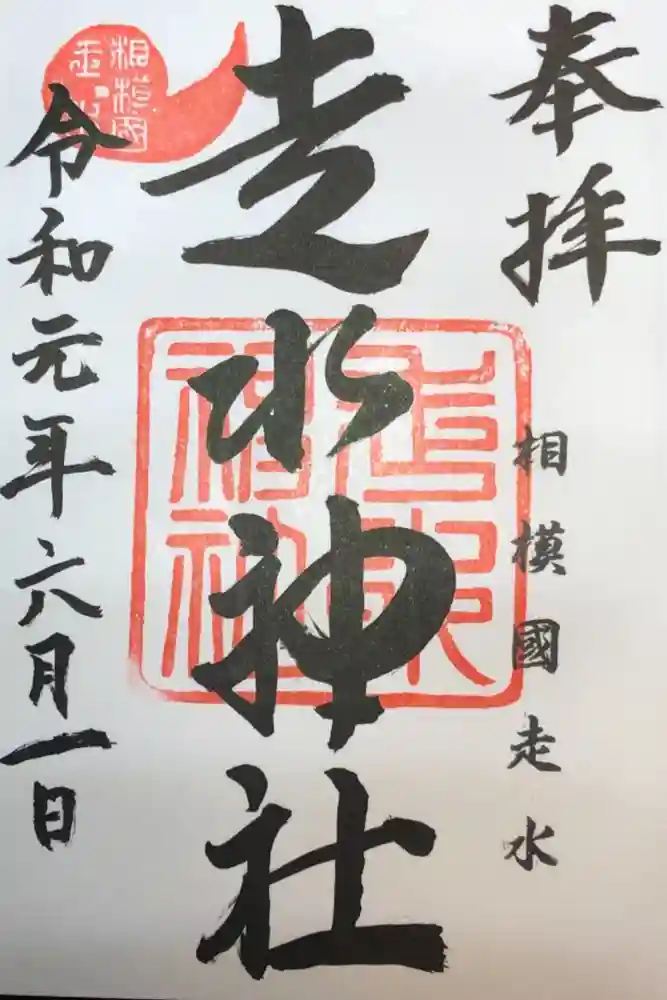 奉拝
相模國走水
走水神社
令和元年六月一日
走水神社